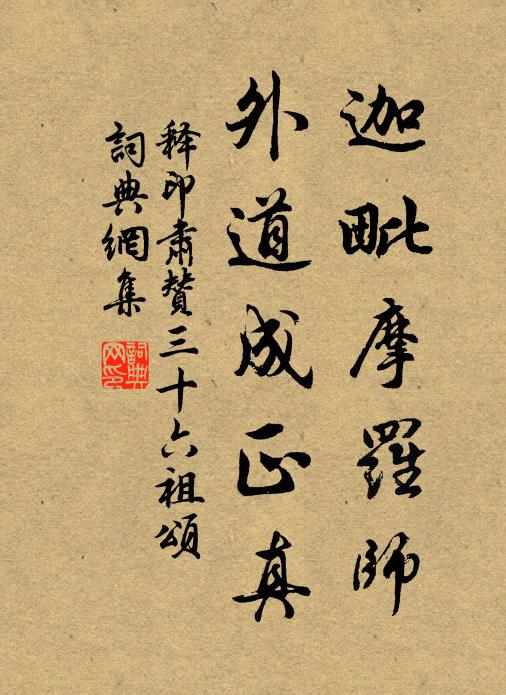 迦毗摩羅師
外道成正真
释印肅贊三十六祖頌
詞典網集
詞典网印